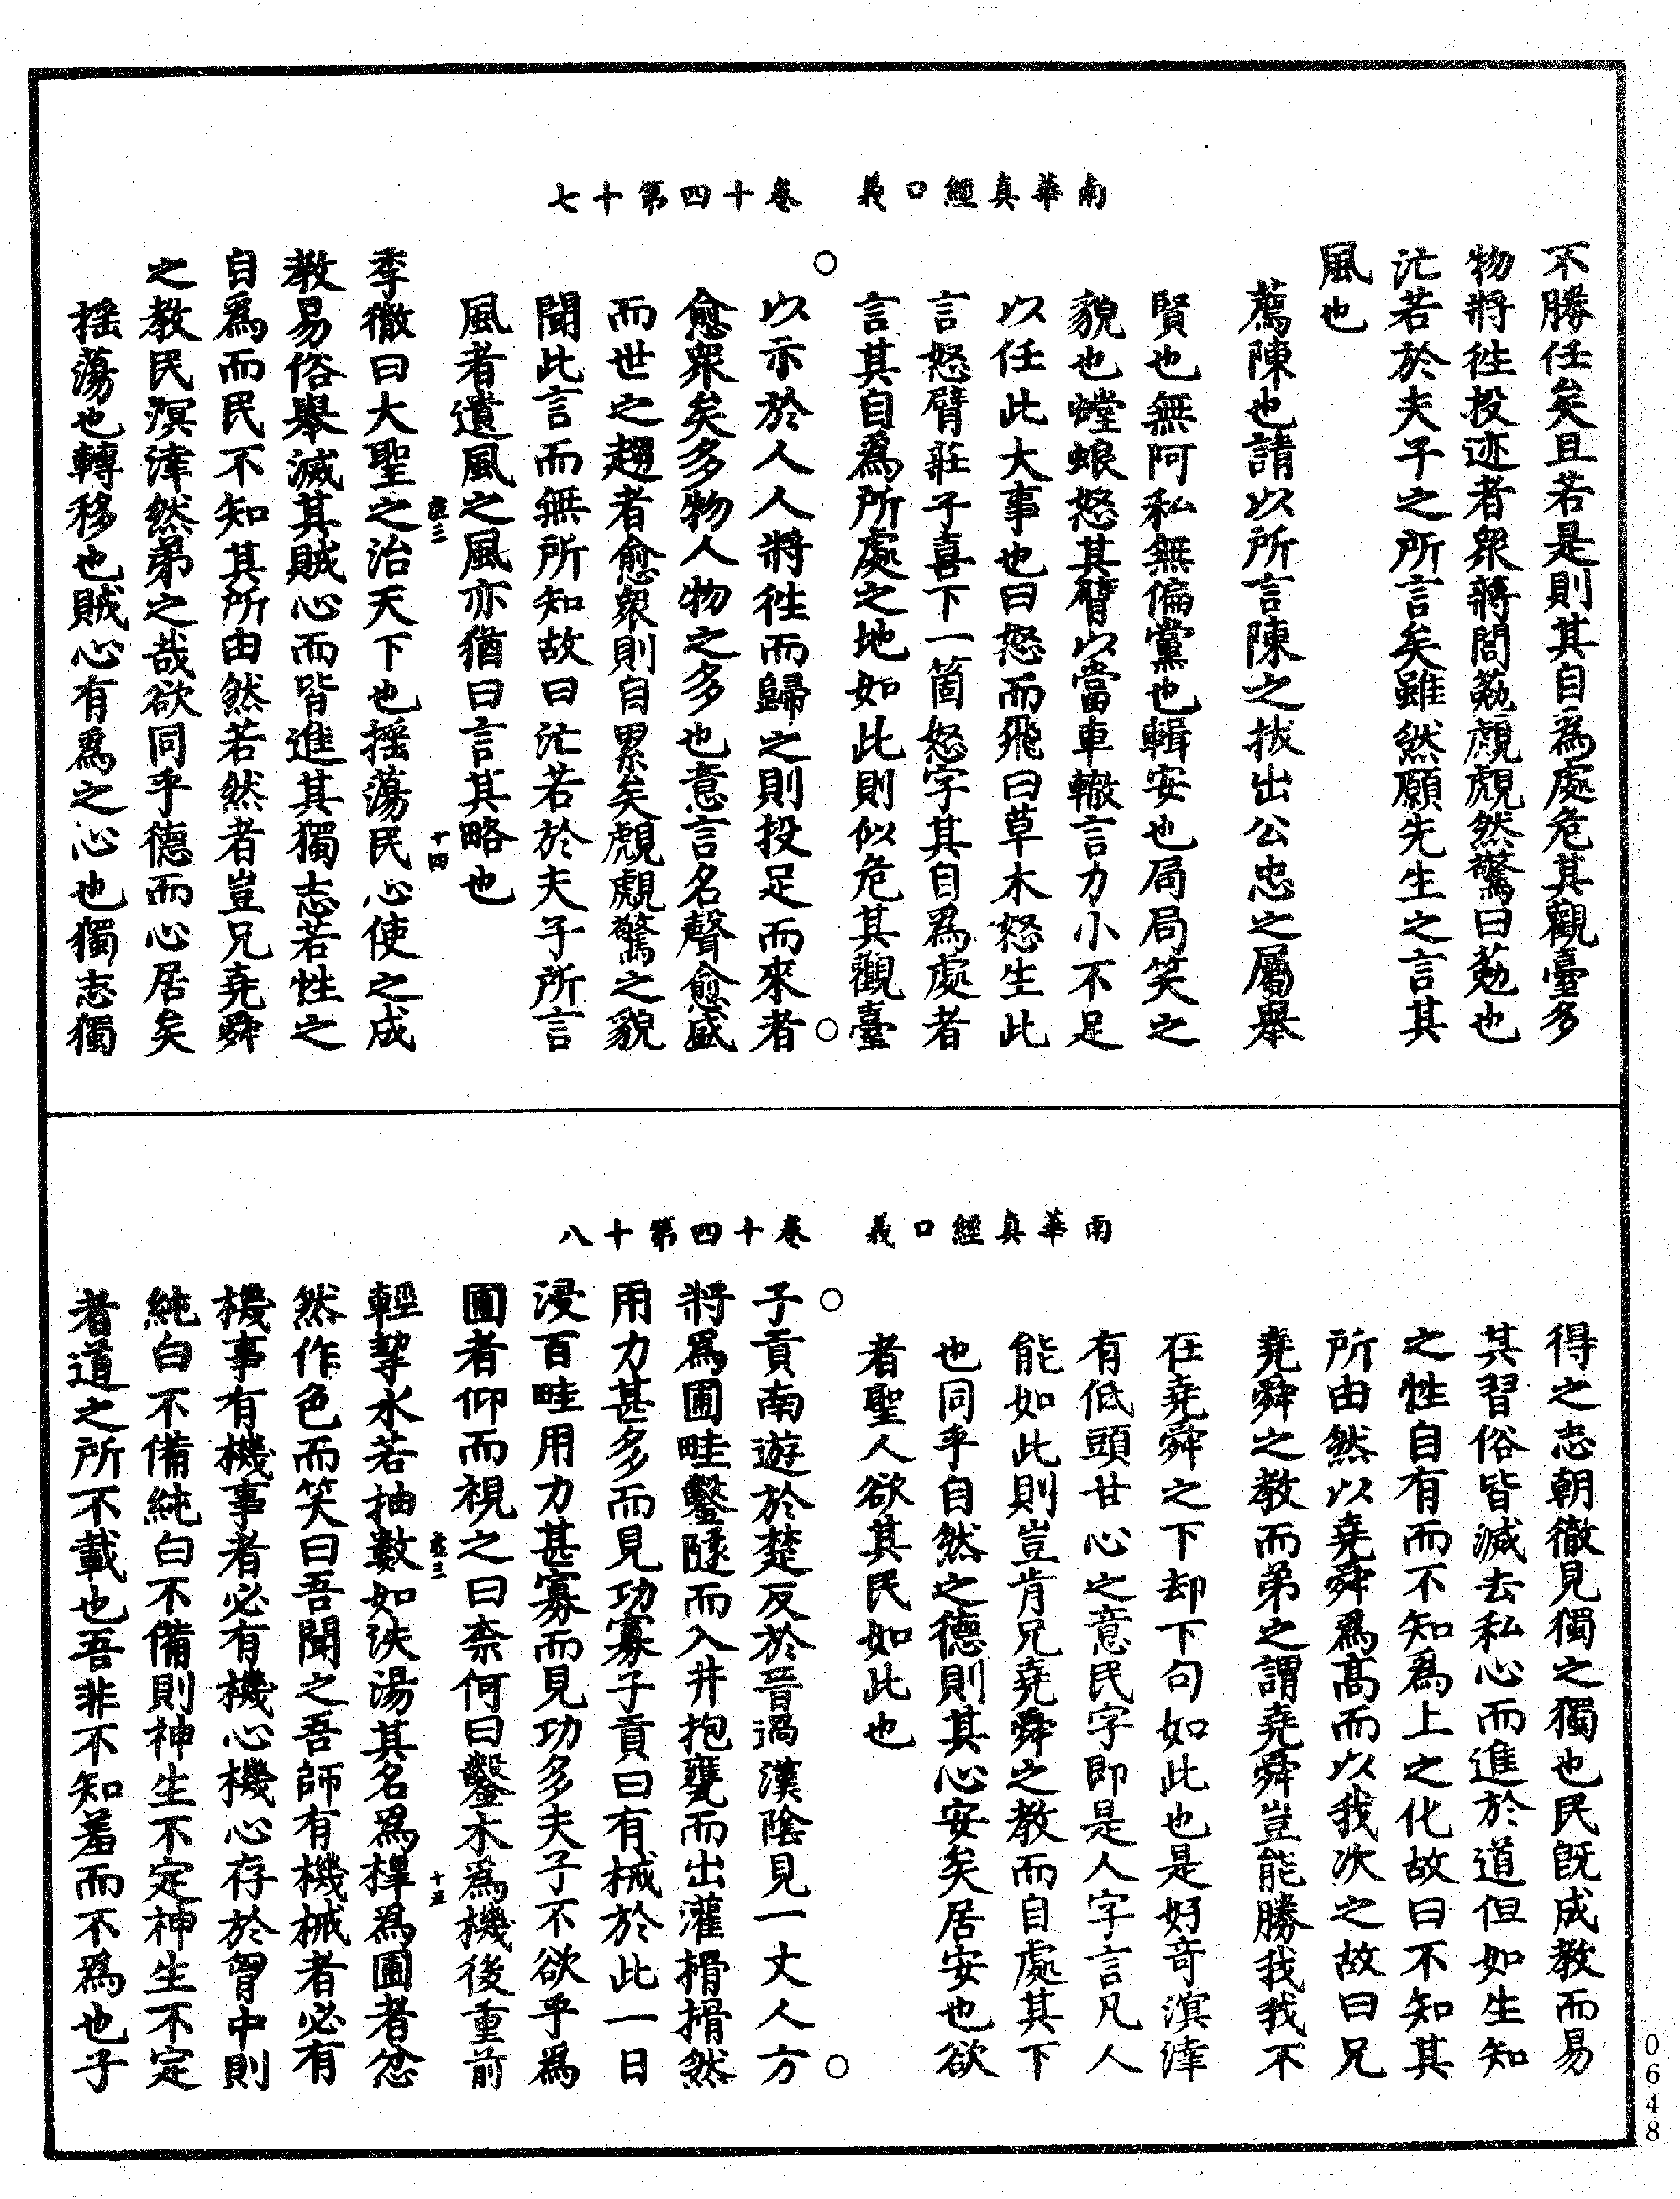 南華真經口義　卷十四第十七
不勝任矣且若是則其自為處危其觀臺多
物將徃投迹者衆蔣閭葂覤覤然驚曰葂也
汒若於夫子之所言矣雖然願先生之言其
風也
薦陳也請以所言陳之拔出公忠之屬舉
賢也無阿私無偏黨也輯安也局局笑之
貌也螳蜋怒其臂以當車轍言力小不足
以任此大事也曰怒而飛曰草木怒生此
言怒臂莊子喜下一箇怒字其自爲處者
言其自爲所處之地如此則似危其觀臺
○
以示於人人將徃而歸之則投足而來者
愈衆矣多物人物之多也意言名聲愈盛
而世之趨者愈衆則自累矣覤覤驚之貌
聞此言而無所知故曰汒若於夫子所言
風者遺風之風亦猶曰言其略也
十四
季徹曰大聖之治天下也揺蕩民心使之成
教易俗舉滅其賊心而皆進其獨志若性之
自爲而民不知其所由然若然者豈兄堯舜
之教民溟涬然弟之哉欲同乎德而心居矣
揺蕩也轉移也賊心有爲之心也獨志獨
南華真經口義　卷十四第十八
得之志朝徹見獨之獨也民既成教而易
其習俗皆滅去私心而進於道但如生知
之性自有而不知爲上之化故曰不知其
所由然以堯舜爲髙而以我次之故曰兄
堯舜之教而弟之謂堯舜豈能勝我我不
在堯舜之下却下句如此也是好奇溟涬
有低頭甘心之意民字即是人字言凡人
能如此則豈肯兄堯舜之教而自處其下
也同乎自然之德則其心安矣居安也欲
者聖人欲其民如此也
○
子貢南遊於楚反於晉過漢陰見一丈人方
將爲圃畦鑿隧而入井抱甕而出灌㨡㨡然
用力甚多而見功寡子貢曰有械於此一日
浸百畦用力甚寡而見功多夫子不欲乎爲
圃者仰而視之曰柰何曰鑿木爲機後重前
十五
輕挈水若抽數如泆湯其名爲橰爲圃者忿
然作色而笑曰吾聞之吾師有機械者必有
機事有機事者必有機心機心存於胷中則
純白不備純白不備則神生不定神生不定
者道之所不載也吾非不知羞而不爲也子
0648